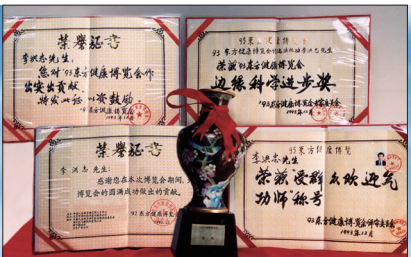 荣誉证书
李洪志先生:
您对'93东方健康博览会作
出突出贡献,
特发此证,以资鼓励
'93东方健康博览会
1993年12月
93东方健康博览会
李洪志先生
荣获'93东方健康博览会
边缘科学进步奖
'93东方健康博览会
荣誉证书
李洪志 先生:
感谢您在本次博览会期间,
博览会的圆满成功做出的贡献。
'92东方健康博览会
93东方健康博览
李洪志先生
荣获受群众欢迎气
功师称号
'93东方健康博览会评审委员会
1993年12月